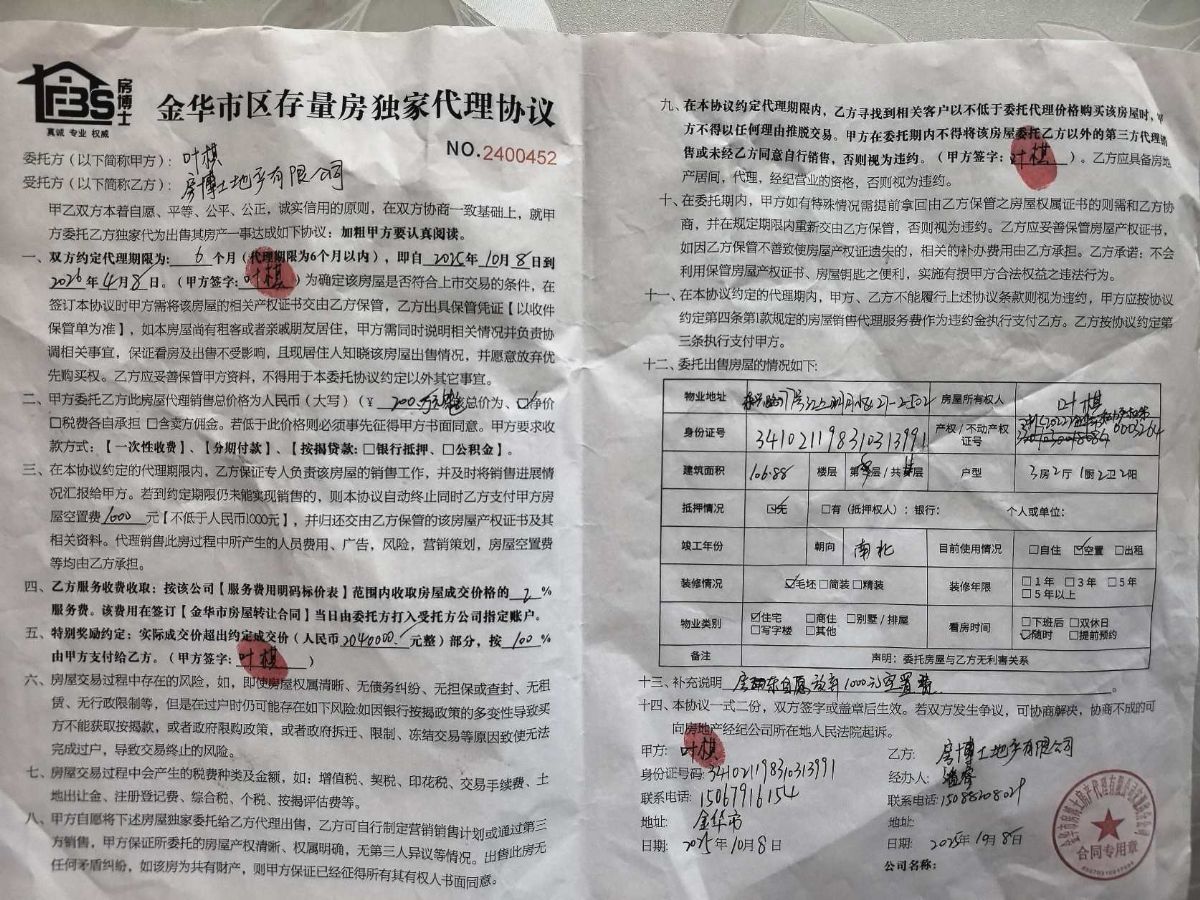 FBS
房博士
真诚 专业 权威
金华市区存量房独家代理协议
NO.2400452
委托方（以下简称甲方）：叶棋
受托方（以下简称乙方）：房博士地产有限公司
甲乙双方本着自愿、平等、公平、公正，诚实信用的原则，在双方协商一致基础上，就甲
方委托乙方独家代为出售其房产一事达成如下协议：加粗甲方要认真阅读。
一、双方约定代理期限为：6个月（代理期限为6个月以内），即自2025年10月8日到
2026年4月8日。（甲方签字：叶棋）为确定该房屋是否符合上市交易的条件，在
签订本协议时甲方需将该房屋的相关产权证书交由乙方保管，乙方出具保管凭证【以收件
保管单为准】，如本房屋尚有租客或者亲戚朋友居住，甲方需同时说明相关情况并负责协
调相关事宜，保证看房及出售不受影响，且现居住人知晓该房屋出售情况，并愿意放弃优
先购买权。乙方应妥善保管甲方资料，不得用于本委托协议约定以外其它事宜。
二、甲方委托乙方此房屋代理销售总价格为人民币（大写）（￥200万 总价为、☑净价
□税费各自承担 □含卖方佣金。若低于此价格则必须事先征得甲方书面同意。甲方要求收
款方式：【一次性收费】、【分期付款】、【按揭贷款：□银行抵押、□公积金】。
三、在本协议约定的代理期限内，乙方保证专人负责该房屋的销售工作，并及时将销售进展情
况汇报给甲方。若到约定期限仍未能实现销售的，则本协议自动终止同时乙方支付甲方房
屋空置费1000元【不低于人民币1000元】，并归还交由乙方保管的该房屋产权证书及其
相关资料。代理销售此房过程中所产生的人员费用、广告，风险，营销策划，房屋空置费
等均由乙方承担。
四、乙方服务收费收取：按该公司【服务费用明码标价表】范围内收取房屋成交价格的2%
服务费。该费用在签订【金华市房屋转让合同】当日由委托方打入受托方公司指定账户。
五、特别奖励约定：实际成交价超出约定成交价（人民币2040000元整）部分，按100%
由甲方支付给乙方。（甲方签字：叶棋）
六、房屋交易过程中存在的风险，如，即使房屋权属清晰、无债务纠纷、无担保或查封、无租
赁、无行政限制等，但是在过户时仍可能存在如下风险:如因银行按揭政策的多变性导致买
方不能获取按揭款，或者政府限购政策，或者政府拆迁、限制、冻结交易等原因致使无法
完成过户，导致交易终止的风险。
七、房屋交易过程中会产生的税费种类及金额，如：增值税、契税、印花税、交易手续费、土
地出让金、注册登记费、综合税、个税、按揭评估费等。
八、甲方自愿将下述房屋独家委托给乙方代理出售，乙方可自行制定营销销售计划或通过第三
方销售，甲方保证所委托的房屋产权清晰、权属明确，无第三人异议等情况。出售此房无
任何矛盾纠纷，如该房为共有财产，则甲方保证已经征得所有其有权人书面同意。
九、在本协议约定代理期限内，乙方寻找到相关客户以不低于委托代理价格购买该房屋时，甲
方不得以任何理由推脱交易。甲方在委托期内不得将该房屋委托乙方以外的第三方代理销
售或未经乙方同意自行销售，否则视为违约。（甲方签字：叶棋）。乙方应具备房地
产居间，代理，经纪营业的资格，否则视为违约。
十、在委托期内，甲方如有特殊情况需提前拿回由乙方保管之房屋权属证书的则需和乙方协
商，并在规定期限内重新交由乙方保管，否则视为违约。乙方应妥善保管房屋产权证书，
如因乙方保管不善致使房屋产权证遗失的，相关的补办费用由乙方承担。乙方承诺：不会
利用保管房屋产权证书、房屋钥匙之便利，实施有损甲方合法权益之违法行为。
十一、在本协议约定的代理期内，甲方、乙方不能履行上述协议条款则视为违约，甲方应按协议
约定第四条第1款规定的房屋销售代理服务费作为违约金执行支付乙方。乙方按协议约定第
三条执行支付甲方。
十二、委托出售房屋的情况如下:
物业地址 21-2502 房屋所有权人 叶棋
身份证号 341021198310313991 产权/不动产权证号 0003264
建筑面积 106.88 楼层 第 层/共 层 户型 3房2厅1厨2卫2阳
抵押情况 ☑无 □有（抵押权人）：银行： 个人或单位：
竣工年份 朝向 南北 目前使用情况 □自住 ☑空置 □出租
装修情况 ☑毛坯 □简装 □精装 装修年限 □1年 □3年 □5年 □5年以上
物业类别 ☑住宅 □商住 □别墅/排屋 □写字楼 □其他 看房时间 □下班后 □双休日 ☑随时 □提前预约
备注 声明：委托房屋与乙方无利害关系
十三、补充说明 房东自愿放弃1000元空置费。
十四、本协议一式二份，双方签字或盖章后生效。若双方发生争议，可协商解决，协商不成的可
向房地产经纪公司所在地人民法院起诉。
甲方：叶棋
身份证号码：341021198310313991
联系电话：15067916154
地址：金华市
日期：2025年10月8日
乙方：房博士地产有限公司
经办人：
联系电话：15088208029
地址：
日期：2025年10月8日
公司名称：
合同专用章